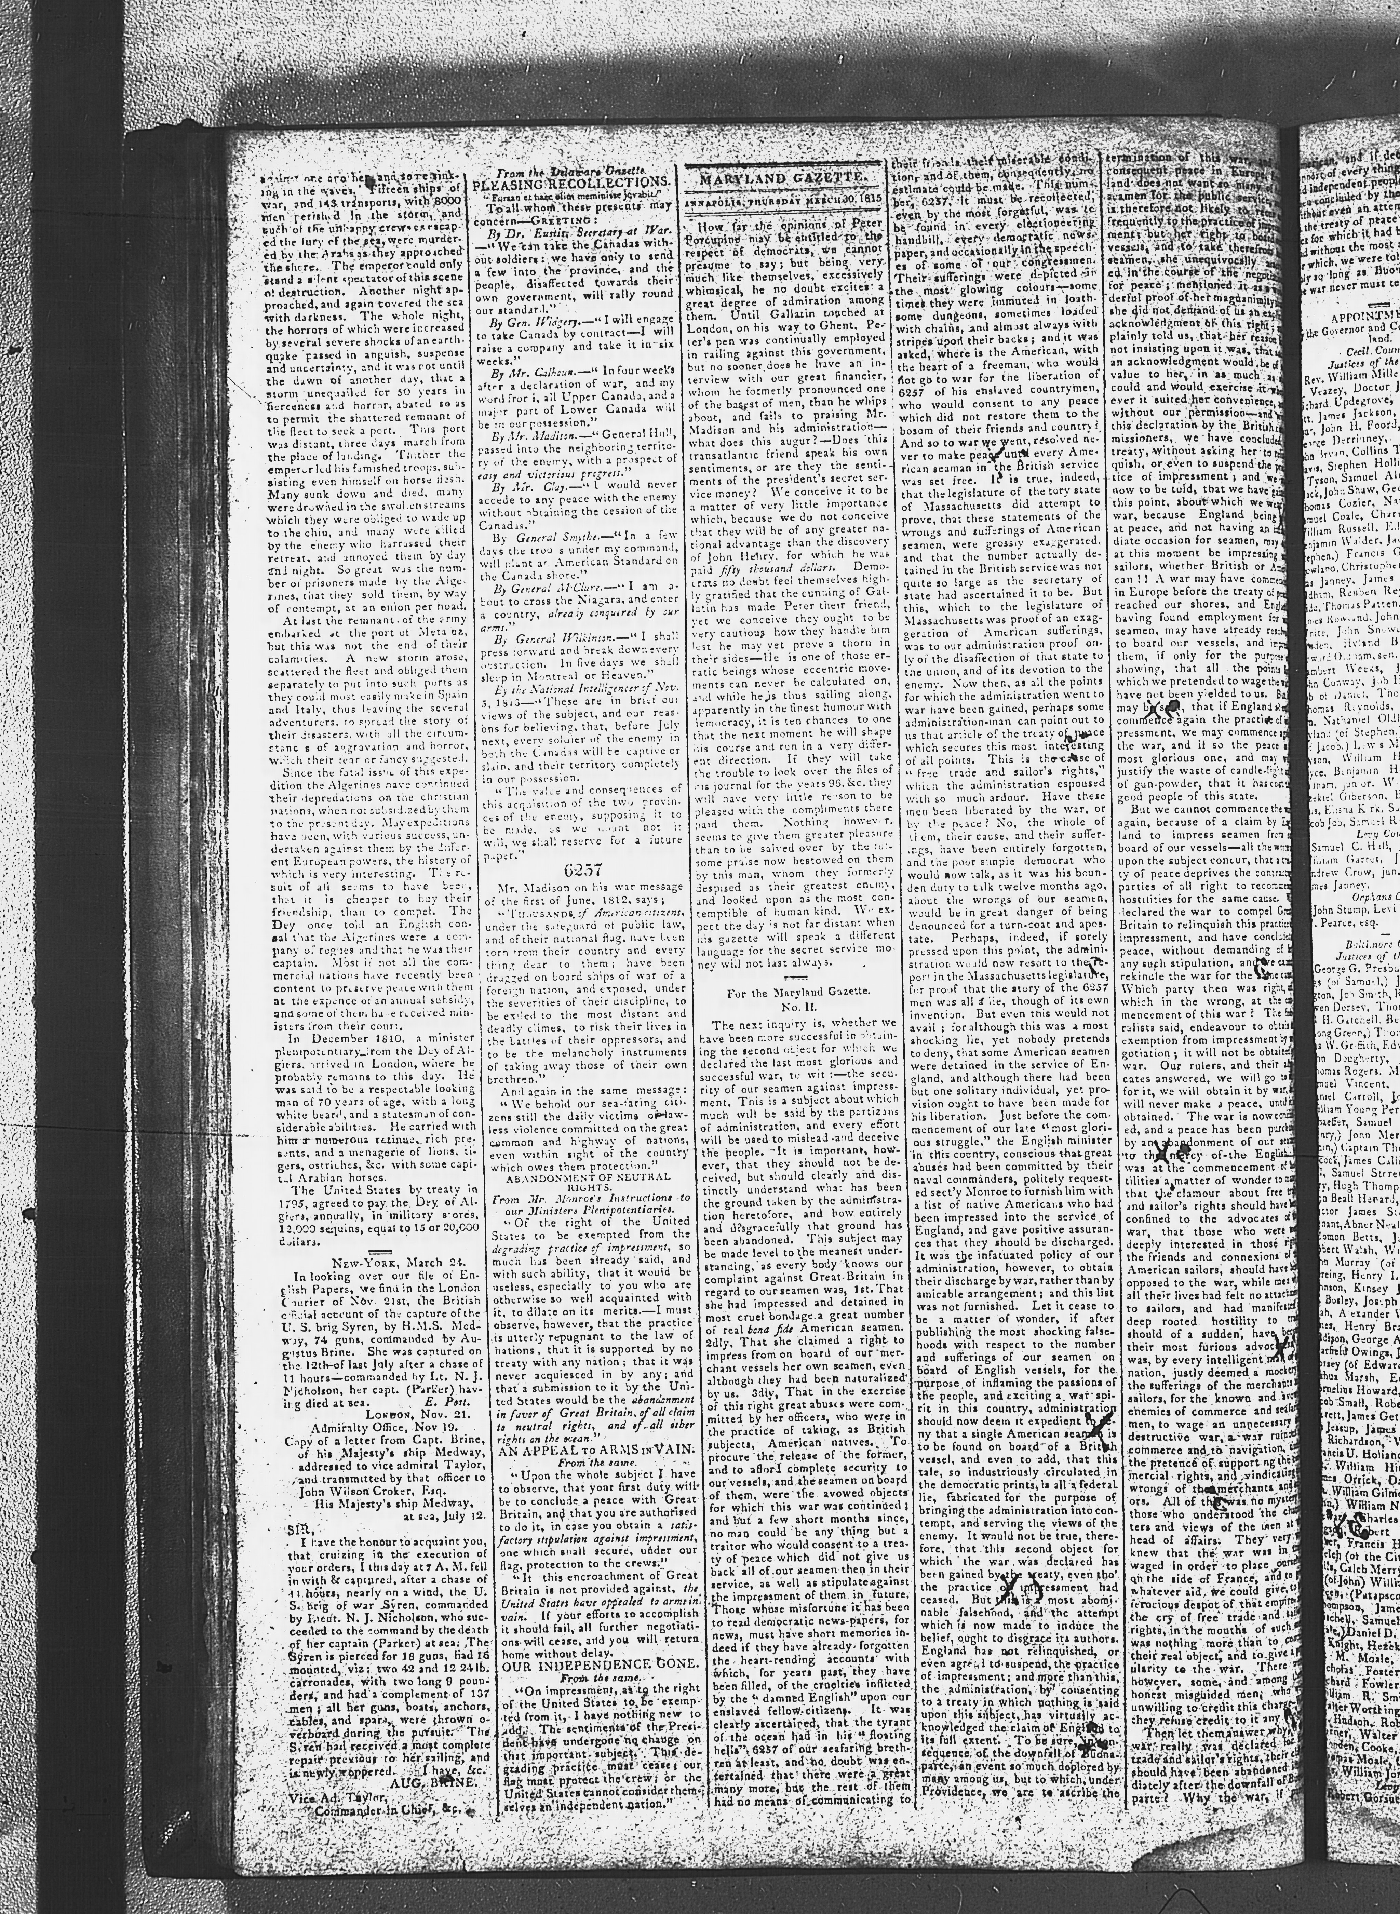 ing in the waves. Fifteen ships of
war, and 143 transports, with 8000
men perished in the storm, and
such of the unhappy crews as escap-
ed the fury of the sea, were murder-
ed by the Arabs as they approached
the shore. The emperor could only
stand a silent spectator of this scene
of destruction. Another night ap-
proached, and again covered the sea
with darkness. The whole night,
the horrors of which were increased
by several severe shocks of an earth-
quake passed in anguish, suspense
and uncertainty, and it was not until
the dawn of another day, that a
storm unequalled for 50 years in
fierceness and horror, abated so as
to permit the shattered remnant of
the fleet to seek a port. This port
was distant, three days march from
the place of landing. Thither the
emperor led his famished troops, sub-
sisting even himself on horse flesh.
Many sunk down and died, many
were drowned in the swolen streams
which they were obliged to wade up
to the chin, and many were killed
by the enemy who harrassed their
retreat, and annoyed them by day
and night. So great was the num-
ber of prisoners made by the Alge-
rines, that they sold them, by way
of contempt, at an onion per head.
At last the remnant of the army
embarked at the port of
but this was not the end of their
calamities. A new storm arose,
scattered the fleet and obliged them
separately to put into such ports as
they could most easily make in Spain
and Italy, thus leaving the several
adventurers, to spread the story of
their disasters, with all the circum-
stances of aggravation and horror,
which their fear or fancy suggested.
Since the fatal issue of this expe-
dition the Algerines have continued
their depredations on the christian
nations, when not subsidized by them
to the present day. May expeditions
have been, with various success, un-
dertaken against them by the differ-
ent European powers, the history of
which is very interesting. The re-
sult of all seems to have been,
that it is cheaper to buy their
friendship, than to compel. The
Dey once told an English con-
sul that the Algerines were a com-
pany of rogues and that he was their
captain. Most if not all the com-
mercial nations have recently been
content to preserve peace with them
at the expence of an annual subsidy,
and some of them have received min-
isters from their court.
In December 1810, a minister
plenipotentiary from the Dey of Al-
giers, arrived in London, where he
probably remains to this day. He
was said to be a respectable looking
man of 70 years of age, with a long
white beard, and a statesman of con-
siderable abilities. He carried with
him a numerous retinue, rich pre-
sents, and a menagerie of lions, ti-
gers, ostriches, &c. with some capi-
tal Arabian horses.
The United States by treaty in
1795, agreed to pay the Dey of Al-
giers, annually, in military stores,
12,000 sequins, equal to 15 or 20,000
dollars.
NEW-YORK, March 24.
In looking over our file of En-
glish Papers, we find in the London
Courier of Nov. 21st, the British
official account of the capture of the
U. S. brig Syren, by H.M.S. Med-
way, 74 guns, commanded by Au-
gustus Brine. She was captured on
the 12th of last July after a chase of
11 hours—commanded by Lt. N. J.
Nicholson, her capt. (Parker) hav-
ing died at sea. E. Post.
LONDON, Nov. 21.
Admiralty Office, Nov 19.
Copy of a letter from Capt. Brine,
of his Majesty's ship Medway,
addressed to vice admiral Taylor,
and transmitted by that officer to
John Wilson Croker, Esq.
His Majesty's ship Medway,
at sea, July 12.
SIR,
I have the honour to acquaint you,
that cruizing in the execution of
your orders, I this day at 7 A. M. fell
in with & captured, after a chase of
11 hours, nearly on a wind, the U.
S. brig of war Syren, commanded
by Lieut. N. J. Nicholson, who suc-
ceeded to the command by the death
of her captain (Parker) at sea. The
Syren is pierced for 18 guns, had 16
mounted, viz: two 42 and 12 24lb.
carronades, with two long 9 poun-
ders, and had a complement of 137
men; all her guns, boats, anchors,
cables, and spars, were thrown o-
verboard during the pursuit. The
Syren had received a most complete
repair previous to her sailing, and
is newly coppered. I have, &c.
AUG. BRINE.
Vice Ad. Taylor,
Commander in Chief, &c.
From the Delaware Gazette.
PLEASING RECOLLECTIONS.
"Forsan et haec olim meminisse jovabit."
To all whom these presents may
concern—GREETING:
By Dr. Eustis, Secretary at War.
—"We can take the Canadas with-
out soldiers: we have only to send
a few into the province, and the
people, disaffected towards their
own government, will rally round
our standard."
By Gen. Widgery.—"I will engage
to take Canada by contract—I will
raise a company and take it in six
weeks."
By Mr. Calhoun.—"In four weeks
after a declaration of war, and my
word for it, all Upper Canada, and a
major part of Lower Canada will
be in our possession."
By Mr. Madison.—"General Hull,
passed into the neighboring territo-
ry of the enemy, with a prospect of
easy and victorious progress."
By Mr. Clay.—"I would never
accede to any peace with the enemy
without obtaining the cession of the
Canadas."
By General Smythe.—"In a few
days the troops under my command,
will plant an American Standard on
the Canada shore."
By General M'Clure.—"I am a-
bout to cross the Niagara, and enter
a country, already conquered by our
arms."
By General Wilkinson.—"I shall
press forward and break down every
obstruction. In five days we shall
sleep in Montreal or Heaven."
By the National Intelligencer of Nov.
5, 1813—"These are in brief our
views of the subject, and our reas-
ons for believing, that, before July
next, every soldier of the enemy in
both the Canadas will be captive or
slain, and their territory completely
in our possession.
"The value and consequences of
this acquisition of the two provin-
ces of the enemy, supposing it to
be made, as we doubt not it
will, we shall reserve for a future
paper."
6257
Mr. Madison on his war message
of the first of June, 1812, says;
"THOUSANDS of American citizens,
under the safeguard of public law,
and of their national flag, have been
torn from their country and every
thing dear to them; have been
dragged on board ships of war of a
foreign nation, and exposed, under
the severities of their discipline, to
be exiled to the most distant and
deadly climes, to risk their lives in
the battles of their oppressors, and
to be the melancholy instruments
of taking away those of their own
brethren."
And again in the same message:
"We behold our sea-faring citi-
zens still the daily victims of law-
less violence committed on the great
common and highway of nations,
even within sight of the country
which owes them protection."
ABANDONMENT OF NEUTRAL
RIGHTS.
From Mr. Monroe's Instructions to
our Ministers Plenipotentiaries.
"Of the right of the United
States to be exempted from the
degrading practice of impressment, so
much has been already said, and
with such ability, that it would be
useless, especially to you who are
otherwise so well acquainted with
it, to dilate on its merits.—I must
observe, however, that the practice
is utterly repugnant to the law of
nations, that it is supported by no
treaty with any nation; that it was
never acquiesced in by any; and
that a submission to it by the Uni-
ted States would be the abandonment
in favor of Great Britain, of all claim
to neutral rights, and of all other
rights on the ocean."
AN APPEAL TO ARMS IN VAIN.
From the same.
"Upon the whole subject I have
to observe, that your first duty will
be to conclude a peace with Great
Britain, and that you are authorised
to do it, in case you obtain a satis-
factory stipulation against impressment,
one which shall secure, under our
flag, protection to the crews."
"If this encroachment of Great
Britain is not provided against, the
United States have appealed to arms in
vain. If your efforts to accomplish
it should fail, all further negotiati-
ons will cease, and you will return
home without delay.
OUR INDEPENDENCE GONE.
From the same.
"On impressment, as to the right
of the United States to be exemp-
ted from it, I have nothing new to
add. The sentiments of the Presi-
dent have undergone no change on
that important subject. This de-
grading practice must cease; our
flag must protect the crew; or the
United States cannot consider them-
selves an independent nation."
MARYLAND GAZETTE.
ANNAPOLIS, THURSDAY MARCH 30, 1815
How far the opinions of Peter
Porcupine may be entitled to the
respect of democrats, we cannot
presume to say; but being very
much like themselves, excessively
whimsical, he no doubt excites a
great degree of admiration among
them. Until Gallatin touched at
London, on his way to Ghent, Pe-
ter's pen was continually employed
in railing against this government,
but no sooner does he have an in-
terview with our great financier,
whom he formerly pronounced one
of the basest of men, than he whips
about, and falls to praising Mr.
Madison and his administration—
what does this augur?—Does this
transatlantic friend speak his own
sentiments, or are they the senti-
ments of the president's secret ser-
vice money? We conceive it to be
a matter of very little importance
which, because we do not conceive
that they will be of any greater na-
tional advantage than the discovery
of John Henry, for which he was
paid fifty thousand dollars. Demo-
crats no doubt feel themselves high-
ly gratified that the cunning of Gal-
latin has made Peter their friend,
yet we conceive they ought to be
very cautious how they handle him
lest he may yet prove a thorn in
their sides—He is one of those er-
ratic beings whose eccentric move-
ments can never be calculated on,
and while he is thus sailing along,
apparently in the finest humour with
democracy, it is ten chances to one
that the next moment he will shape
his course and run in a very differ-
ent direction. If they will take
the trouble to look over the files of
his journal for the years 96, &c. they
will have very little reason to be
pleased with the compliments there
paid them. Nothing however,
seems to give them greater pleasure
than to be salved over by the ful-
some praise now bestowed on them
by this man, whom they formerly
despised as their greatest enemy,
and looked upon as the most con-
temptible of human kind. We ex-
pect the day is not far distant when
his gazette will speak a different
language for the secret service mo-
ney will not last always.
For the Maryland Gazette.
No. II.
The next inquiry is, whether we
have been more successful in obtain-
ing the second object for which we
declared the last most glorious and
successful war, to wit:—the secu-
rity of our seamen against impress-
ment. This is a subject about which
much will be said by the partizans
of administration, and every effort
will be used to mislead and deceive
the people. It is important, how-
ever, that they should not be de-
ceived, but should clearly and dis-
tinctly understand what has been
the ground taken by the administra-
tion heretofore, and how entirely
and disgracefully that ground has
been abandoned. This subject may
be made level to the meanest under-
standing, as every body knows our
complaint against Great Britain in
regard to our seamen was, 1st. That
she had impressed and detained in
most cruel bondage a great number
of real bona fide American seamen.
2dly, That she claimed a right to
impress from on board of our mer-
chant vessels her own seamen, even
although they had been naturalized
by us. 3dly, That in the exercise
of this right great abuses were com-
mitted by her officers, who were in
the practice of taking, as British
subjects, American natives. To
procure the release of the former,
and to afford complete security to
our vessels, and the seamen on board
of them, were the avowed objects
for which this war was continued;
and but a few short months since,
no man could be any thing but a
traitor who would consent to a trea-
ty of peace which did not give us
back all of our seamen then in their
service, as well as stipulate against
the impressment of them in future.
Those whose misfortune it has been
to read democratic news-papers, for
news, must have short memories in-
deed if they have already forgotten
the heart-rending accounts with
which, for years past, they have
been filled, of the cruelties inflicted
by the "damned English" upon our
enslaved fellow-citizens. It was
clearly ascertained, that the tyrant
of the ocean had in his "floating
hells", 6257 of our seafaring breth-
ren at least, and no doubt was en-
tertained that there were a great
many more, but the rest of them
had no means of communicating to
their friends their miserable condi-
tion; and of them, consequently, no
estimate could be made. This num-
ber, 6257, it must be recollected,
even by the most forgetful, was to
be found in every electioneering
handbill, every democratic news-
paper, and occasionally in the speech-
es of some of our congressmen.
Their sufferings were depicted in
the most glowing colours—some
times they were immured in loath-
some dungeons, sometimes loaded
with chains, and almost always with
stripes upon their backs; and it was
asked, where is the American, with
the heart of a freeman, who would
not go to war for the liberation of
6257 of his enslaved countrymen,
who would consent to any peace
which did not restore them to the
bosom of their friends and country!
And so to war we went, resolved ne-
ver to make peace until every Ame-
rican seaman in the British service
was set free. It is true, indeed,
that the legislature of the tory state
of Massachusetts did attempt to
prove, that these statements of the
wrongs and sufferings of American
seamen, were grossly exaggerated,
and that the number actually de-
tained in the British service was not
quite so large as the secretary of
state had ascertained it to be. But
this, which to the legislature of
Massachusetts was proof of an exag-
geration of American sufferings,
was to our administration proof on-
ly of the disaffection of that state to
the union, and of its devotion to the
enemy. Now then, as all the points
for which the administration went to
war have been gained, perhaps some
administration-man can point out to
us that article of the treaty of peace
which secures this most interesting
of all points. This is the case of
"free trade and sailor's rights,"
which the administration espoused
with so much ardour. Have these
men been liberated by the war, or
by the peace? No, the whole of
them, their cause, and their suffer-
ings, have been entirely forgotten,
and the poor simple democrat who
would now talk, as it was his boun-
den duty to talk twelve months ago,
about the wrongs of our seamen,
would be in great danger of being
denounced for a turn-coat and apos-
tate. Perhaps, indeed, if sorely
pressed upon this point, the admini-
stration would now resort to the re-
port in the Massachusetts legislature,
for proof that the story of the 6257
men was all a lie, though of its own
invention. But even this would not
avail; for although this was a most
shocking lie, yet nobody pretends
to deny, that some American seamen
were detained in the service of En-
gland, and although there had been
but one solitary individual, yet pro-
vision ought to have been made for
his liberation. Just before the com-
mencement of our late "most glori-
ous struggle," the English minister
in this country, conscious that great
abuses had been committed by their
naval commanders, politely request-
ed sect'y Monroe to furnish him with
a list of native Americans who had
been impressed into the service of
England, and gave positive assuran-
ces that they should be discharged.
It was the infatuated policy of our
administration, however, to obtain
their discharge by war, rather than by
amicable arrangement; and this list
was not furnished. Let it cease to
be a matter of wonder, if after
publishing the most shocking false-
hoods with respect to the number
and sufferings of our seamen on
board of English vessels, for the
purpose of inflaming the passions of
the people, and exciting a war spi-
rit in this country, administration
should now deem it expedient to de-
ny that a single American seaman is
to be found on board of a British
vessel, and even to add, that this
tale, so industriously circulated in
the democratic prints, is all a federal
lie, fabricated for the purpose of
bringing the administration into con-
tempt, and serving the views of the
enemy. It would not be true, there-
fore, that this second object for
which the war was declared has
been gained by treaty, even tho'
the practice of impressment had
ceased. But it is a most abomi-
nable falsehood, and the attempt
which is now made to induce the
belief, ought to disgrace its authors.
England has not relinquished, or
even agreed to suspend, the practice
of impressment; and more than this,
the administration, by consenting
to a treaty in which nothing is said
upon this subject, has virtually ac-
knowledged the claim of England to
its full extent. To be sure,
sequence of the downfall of Buona-
parte, an event so much deplored by
many among us, but to which, under
Providence, we are to ascribe the
termination of this war, and
consequent peace in Europe,
land does not want so many of
seamen for the public service,
is therefore not likely to
frequently to the practice of impress-
ment; but her right to board
vessels, and to take therefrom
seamen, she unequivocally
ed in the course of the negotia-
for peace; mentioned it as a
derful proof of her magnanimity
she did not demand of us an exp
acknowledgment of this right;
plainly told us, that her reason
not insisting upon it was, that
an acknowledgment would be of
value to her, in as much as
could and would exercise it
ever it suited her convenience,
without our permission—and
this declaration by the British
missioners, we have concluded
treaty, without asking her to
quish, or even to suspend the
tice of impressment; and we
now to be told, that we have
this point, about which we
war, because England being
at peace, and not having an
diate occasion for seamen, may
at this moment be impressing
sailors, whether British or Ame
can!! A war may have commenced
in Europe before the treaty of
reached our shores, and England
having found employment for
seamen, may have already
to board our vessels, and
them, if only for the purpose
showing, that all the points
which we pretended to wage the
have not been yielded to us. But
may be, that if England
commences again the practice of
pressment, we may commence again
the war, and if so the peace is
most glorious one, and may
justify the waste of candle-light
of gun-powder, that it has cost
good people of this state.
But we cannot commence the war
again, because of a claim by
land to impress seamen from
board of our vessels—all the
upon the subject concur, that a
ty of peace deprives the contracting
parties of all right to recommence
hostilities for the same cause.
declared the war to compel Great
Britain to relinquish this practice
impressment, and have concluded
peace, without demanding of
any such stipulation, and we can
rekindle the war for the same
Which party then was right,
which in the wrong, at the com
mencement of this war? The fede
ralists said, endeavour to obtain
exemption from impressment by
gotiation; it will not be obtained
war. Our rulers, and their
cates answered, we will go to
for it, we will obtain it by war,
will never make a peace, until
obtained. The war is now end
ed, and a peace has been purchased
by an abandonment of our seamen
to the mercy of the English
was at the commencement of
tilities a matter of wonder to
that the clamour about free trade
and sailor's rights should have
confined to the advocates of
war, that those who were
deeply interested in those rights
the friends and connexions of
American sailors, should have
opposed to the war, while men
all their lives had felt no attachment
to sailors, and had manifested
deep rooted hostility to
should of a sudden, have
their most furious advocates
was, by every intelligent man
nation, justly deemed a mockery
the sufferings of the merchants
sailors, for the known and
enemies of commerce and sea
men, to wage an unnecessary
destructive war, a war ruinous
commerce and to navigation,
the pretence of supporting the
mercial rights, and vindicating
wrongs of the merchants and
ors. All of this was no mystery
those who understood the
ters and views of the men at
head of affairs. They
knew that the war was in
waged in order to place our
on the side of France, and
whatever aid, we could give,
ferocious despot of that empire
the cry of free trade and
rights, in the mouths of such
was nothing more than to
their real object, and to give
ularity to the war. There
however, some, and among
honest misguided men, who
unwilling to credit this charge
they refuse credit to it any
Then let them answer why,
war really was declared for
trade and sailor's rights, their
should have been abandoned
diately after the downfall of
parte? Why the war, if
APPOINTME
the Governor and
land.
Cecil Coun
Justices of the
Rev. William Mille
Veazey, Doctor J
Richard Updegrove,
James Jackson,
John H. Foord,
Levy Co
Samuel C. Hall,
Orphans C
John Stump, Levi
Pearce, esq.
Baltimore
Justices of th
George G. Presbu